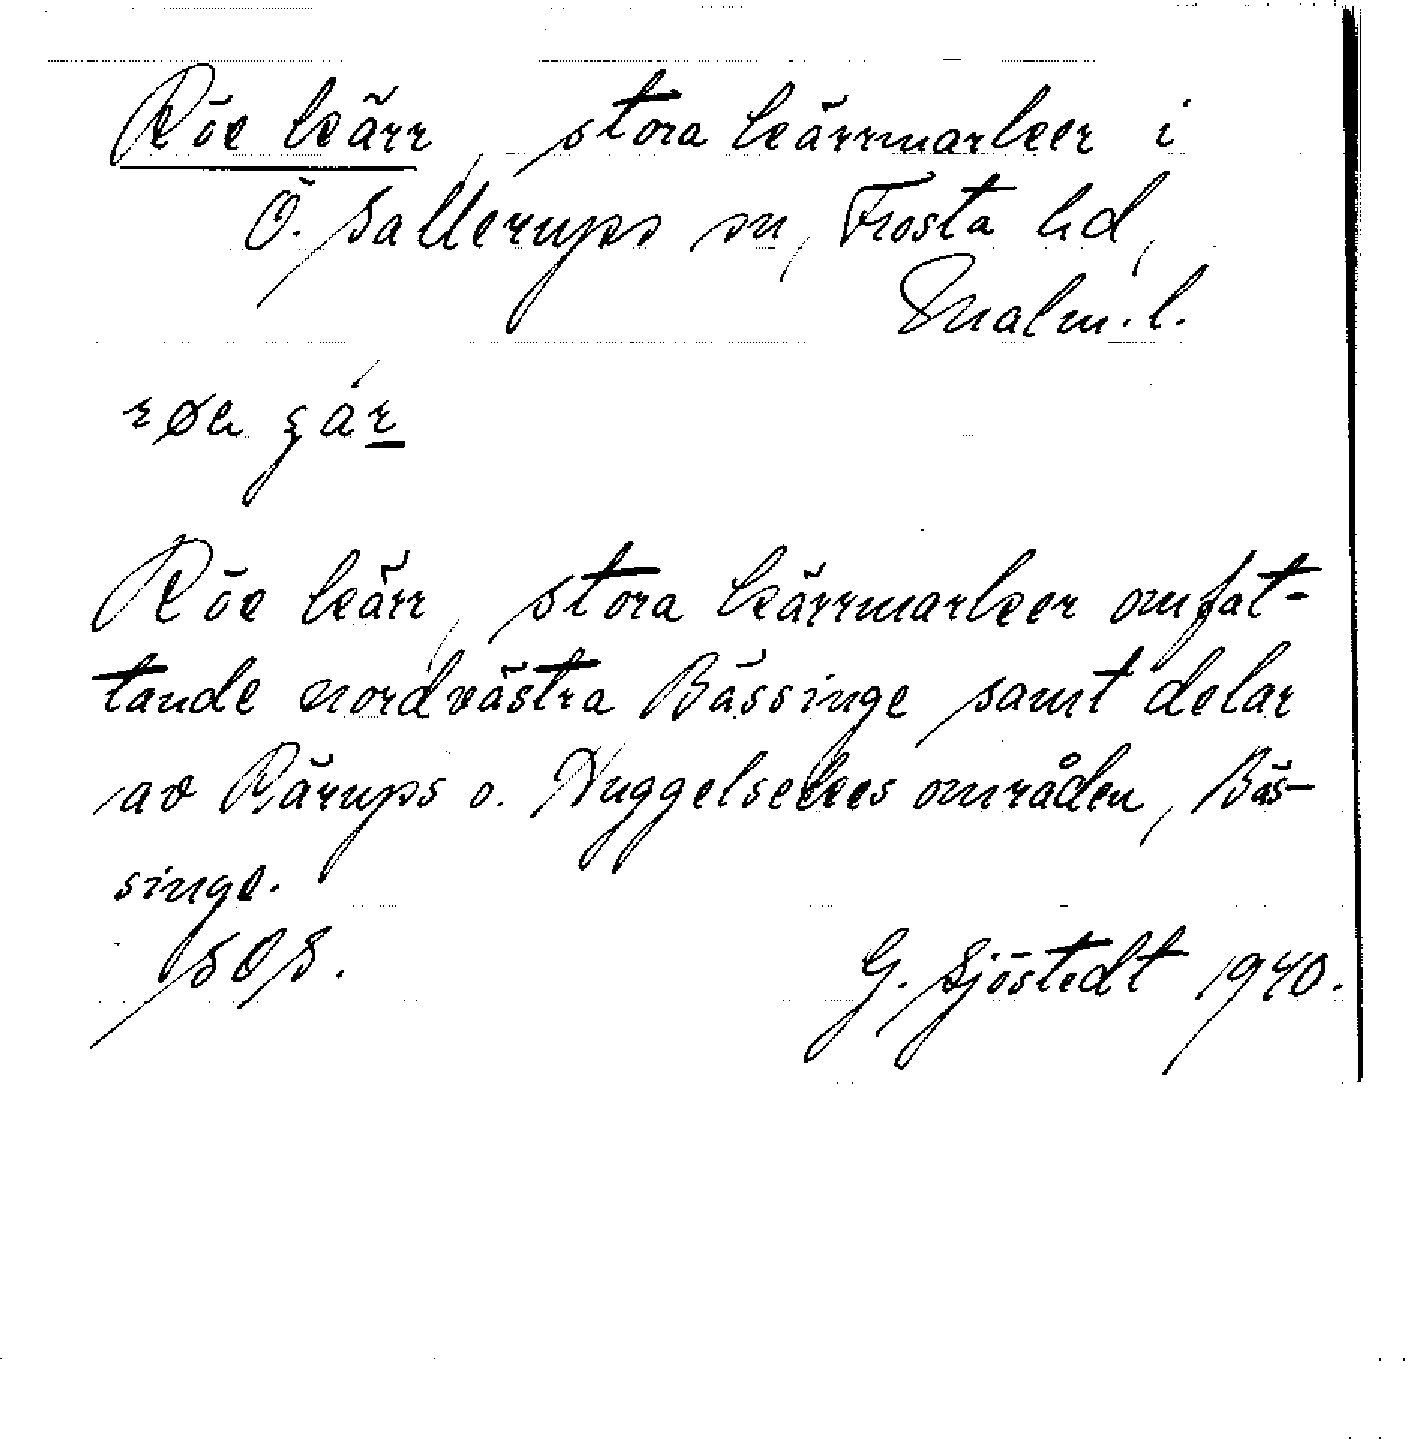 Röe kärr, stora kärrmarker i
Ö. Sallerups sn, Frosta hd,
Malm. l.
Röe kärr, stora kärrmarker omfat-
tande nordvästra Bässinge samt delar
av Rärups o. Nuggelsekes områden, Bäs-
singe.
SOS.
G. Sjöstedt 1940.